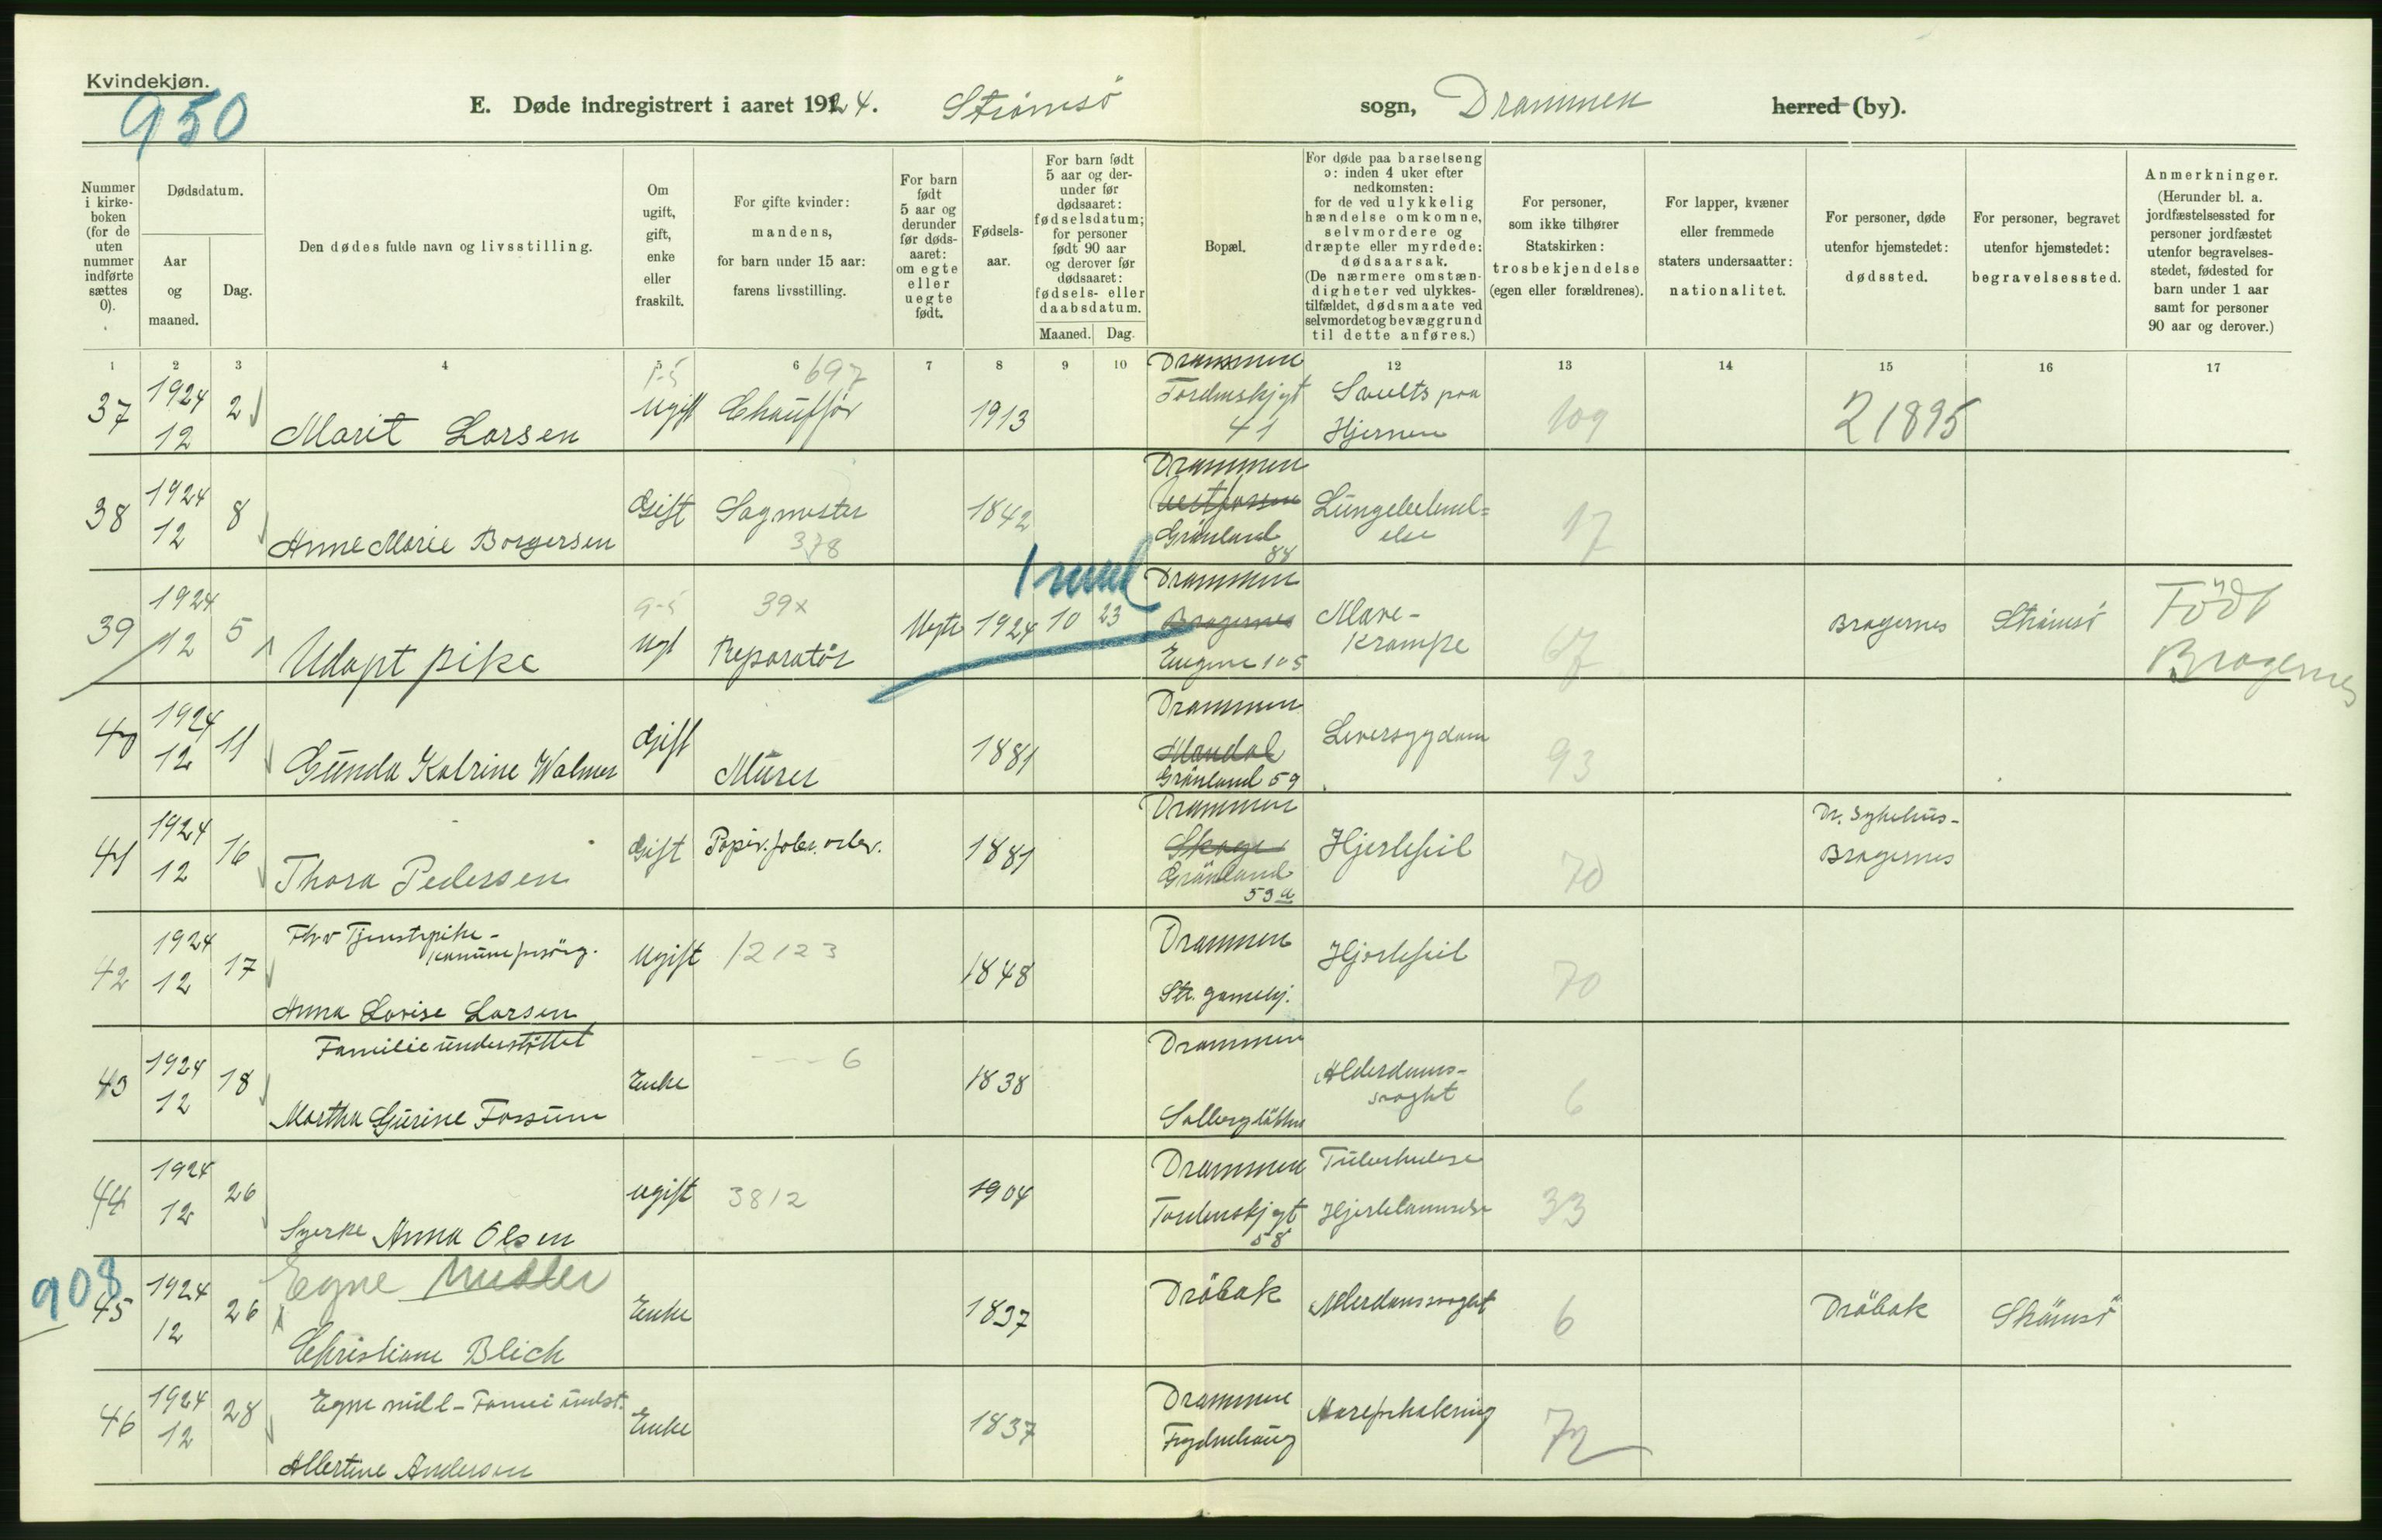 Kvindekjøn.
950
E. Døde indregistrert i aaret 1924. Strømsö sogn, Drammen herred (by).
Nummer i kirke-boken (for de uten nummer indførte sættes 0).
Dødsdatum.
Aar og maaned.
Dag.
Den dødes fulde navn og livsstilling.
Om ugift, gift, enke eller fraskilt.
For gifte kvinder: mandens, for barn under 15 aar: farens livsstilling.
For barn født 5 aar og derunder før døds-aaret: om egte eller uegte født.
Fødsels-aar.
For barn født 5 aar og der-under før dødsaaret: fødselsdatum; for personer født 90 aar og derover før dødsaaret: fødsels- eller daabsdatum.
Maaned. Dag.
Bopæl.
For døde paa barselseng ɔ: inden 4 uker efter nedkomsten: for de ved ulykkelig hændelse omkomne, selvmordere og dræpte eller myrdede: dødsaarsak. (De nærmere omstæn-digheter ved ulykkes-tilfældet, dødsmaate ved selvmordet og bevæggrund til dette anføres.)
For personer, som ikke tilhører Statskirken: trosbekjendelse (egen eller forældrenes).
For lapper, kvæner eller fremmede staters undersaatter: nationalitet.
For personer, døde utenfor hjemstedet: dødssted.
For personer, begravet utenfor hjemstedet: begravelsessted.
Anmerkninger. (Herunder bl. a. jordfæstelsessted for personer jordfæstet utenfor begravelses-stedet, fødested for barn under 1 aar samt for personer 90 aar og derover.)
1 2 3 4 5 6 7 8 9 10 12 13 14 15 16 17
37 1924 12 2 Marit Larsen Ugift 697 Chauffør 1913 Drammen Tordenskjgt 41 Svulst paa Hjernen 109 21895
38 1924 12 8 Anne Marie Borgersen Gift Sagmester 378 1842 Drammen Vestfossen Grønland 88 Lungebetænd=else 17
1 mnd
39 1924 12 5 Udøpt pike Ugt 39x Reparatør Uegte 1924 10 23 Drammen Bragernes Engene 105 Mave-Krampe 67 Bragernes Strømsö Född Bragernes
40 1924 12 11 Gunda Katrine Walmer Gift Murer 1881 Drammen Mandal Grönland 59 Leversygdom 93
41 1924 12 16 Thora Pedersen Gift Papir.fabr.arb. 1881 Drammen Skoger Grönland 59 a Hjertefeil 70 Dr. Sykehus-Bragernes
42 1924 12 17 Fhv Tjenestepike-kommuneforsörg. Anna Lovise Larsen Ugift 12123 1848 Drammen Str. gamlehj. Hjertefeil 70
43 1924 12 18 Familieunderstöttet Martha Gurine Fossum Enke 6 1838 Drammen Solbergløkken Alderdoms-svaght 6
44 1924 12 26 Syerske Anna Olsen ugift 3812 1904 Drammen Tordenskjgt 58 Tuberkulose Hjertelammelse 33
908
45 1924 12 26 Egne Midler Christiane Blich Enke 1837 Dröbak Alderdomssvaght 6 Dröbak Strömsö
46 1924 12 28 Egne midl-Famiundst. Albertine Andersen Enke 1837 Drammen Frydenhaug Aareforkalkning 72